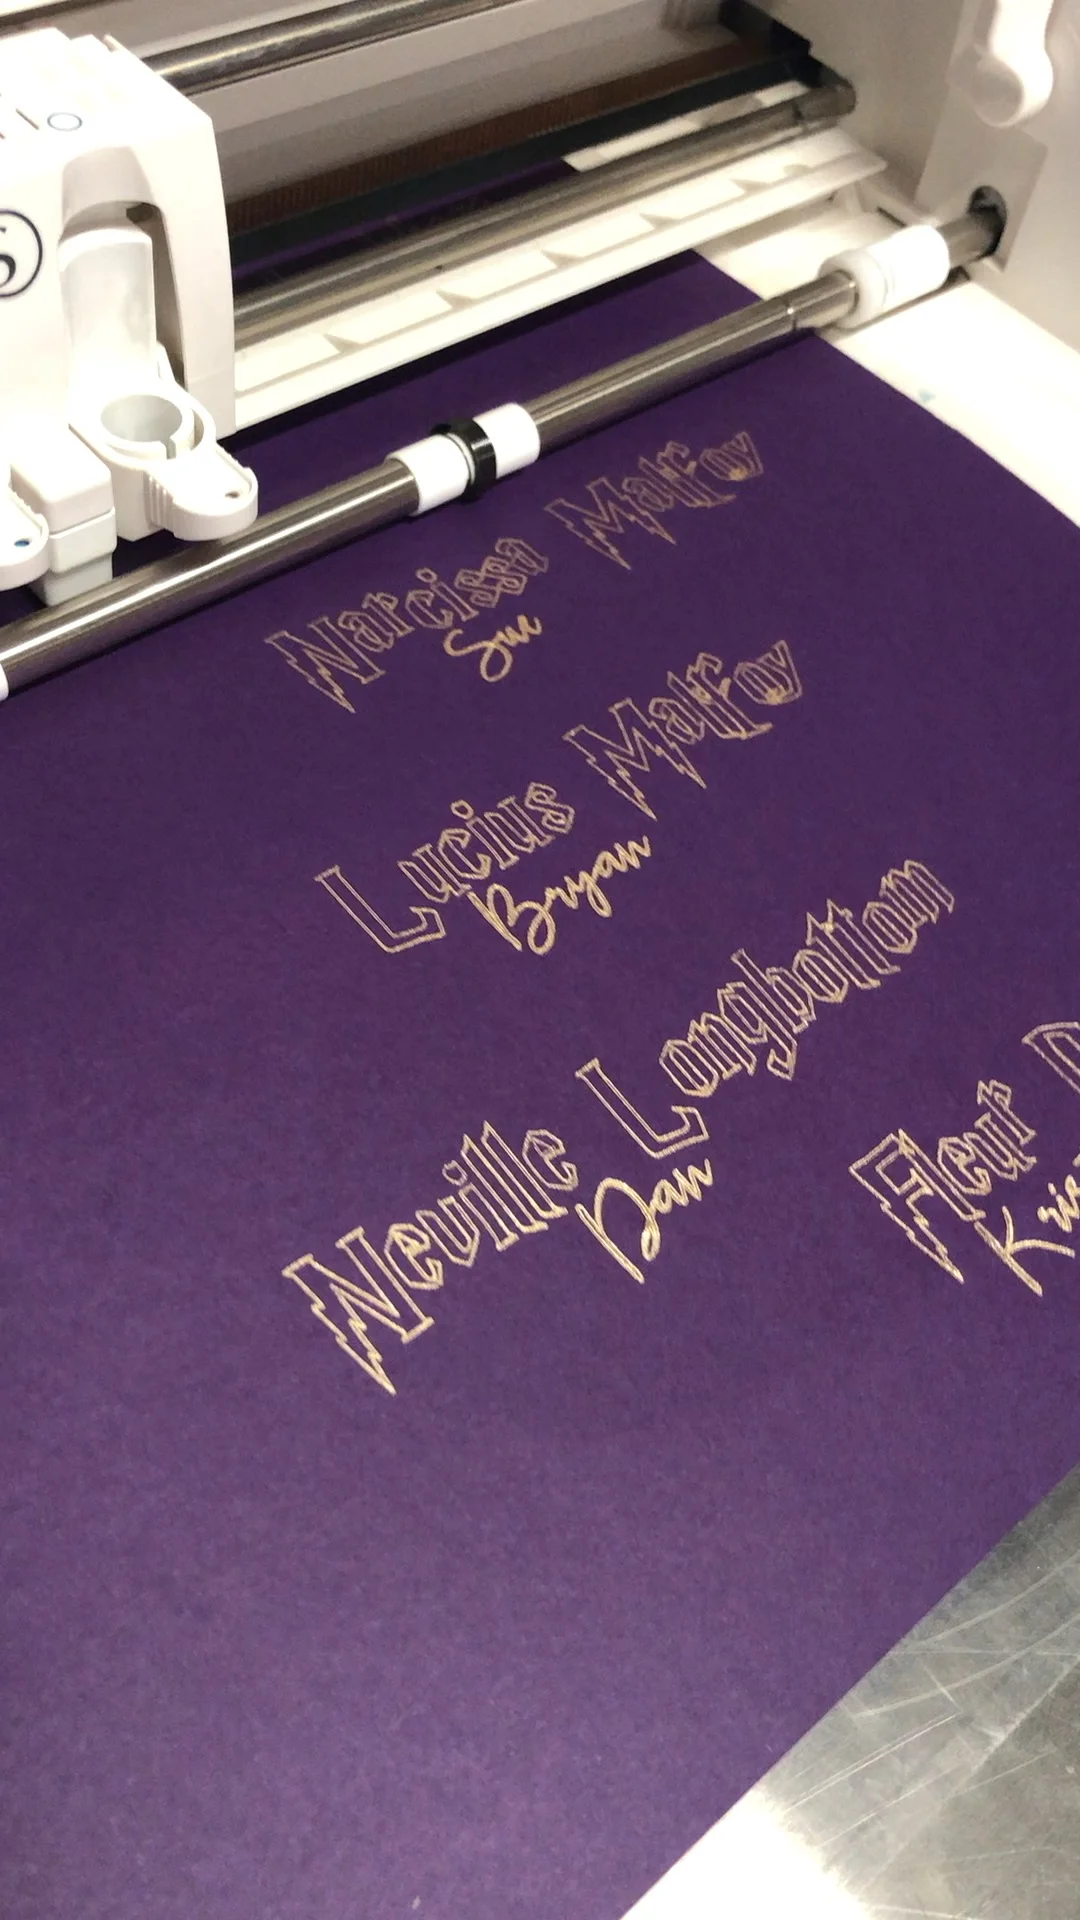 Narcissa Malfoy
Sue
Lucius Malfoy
Bryan
Neville Longbottom
Dan
Fleur